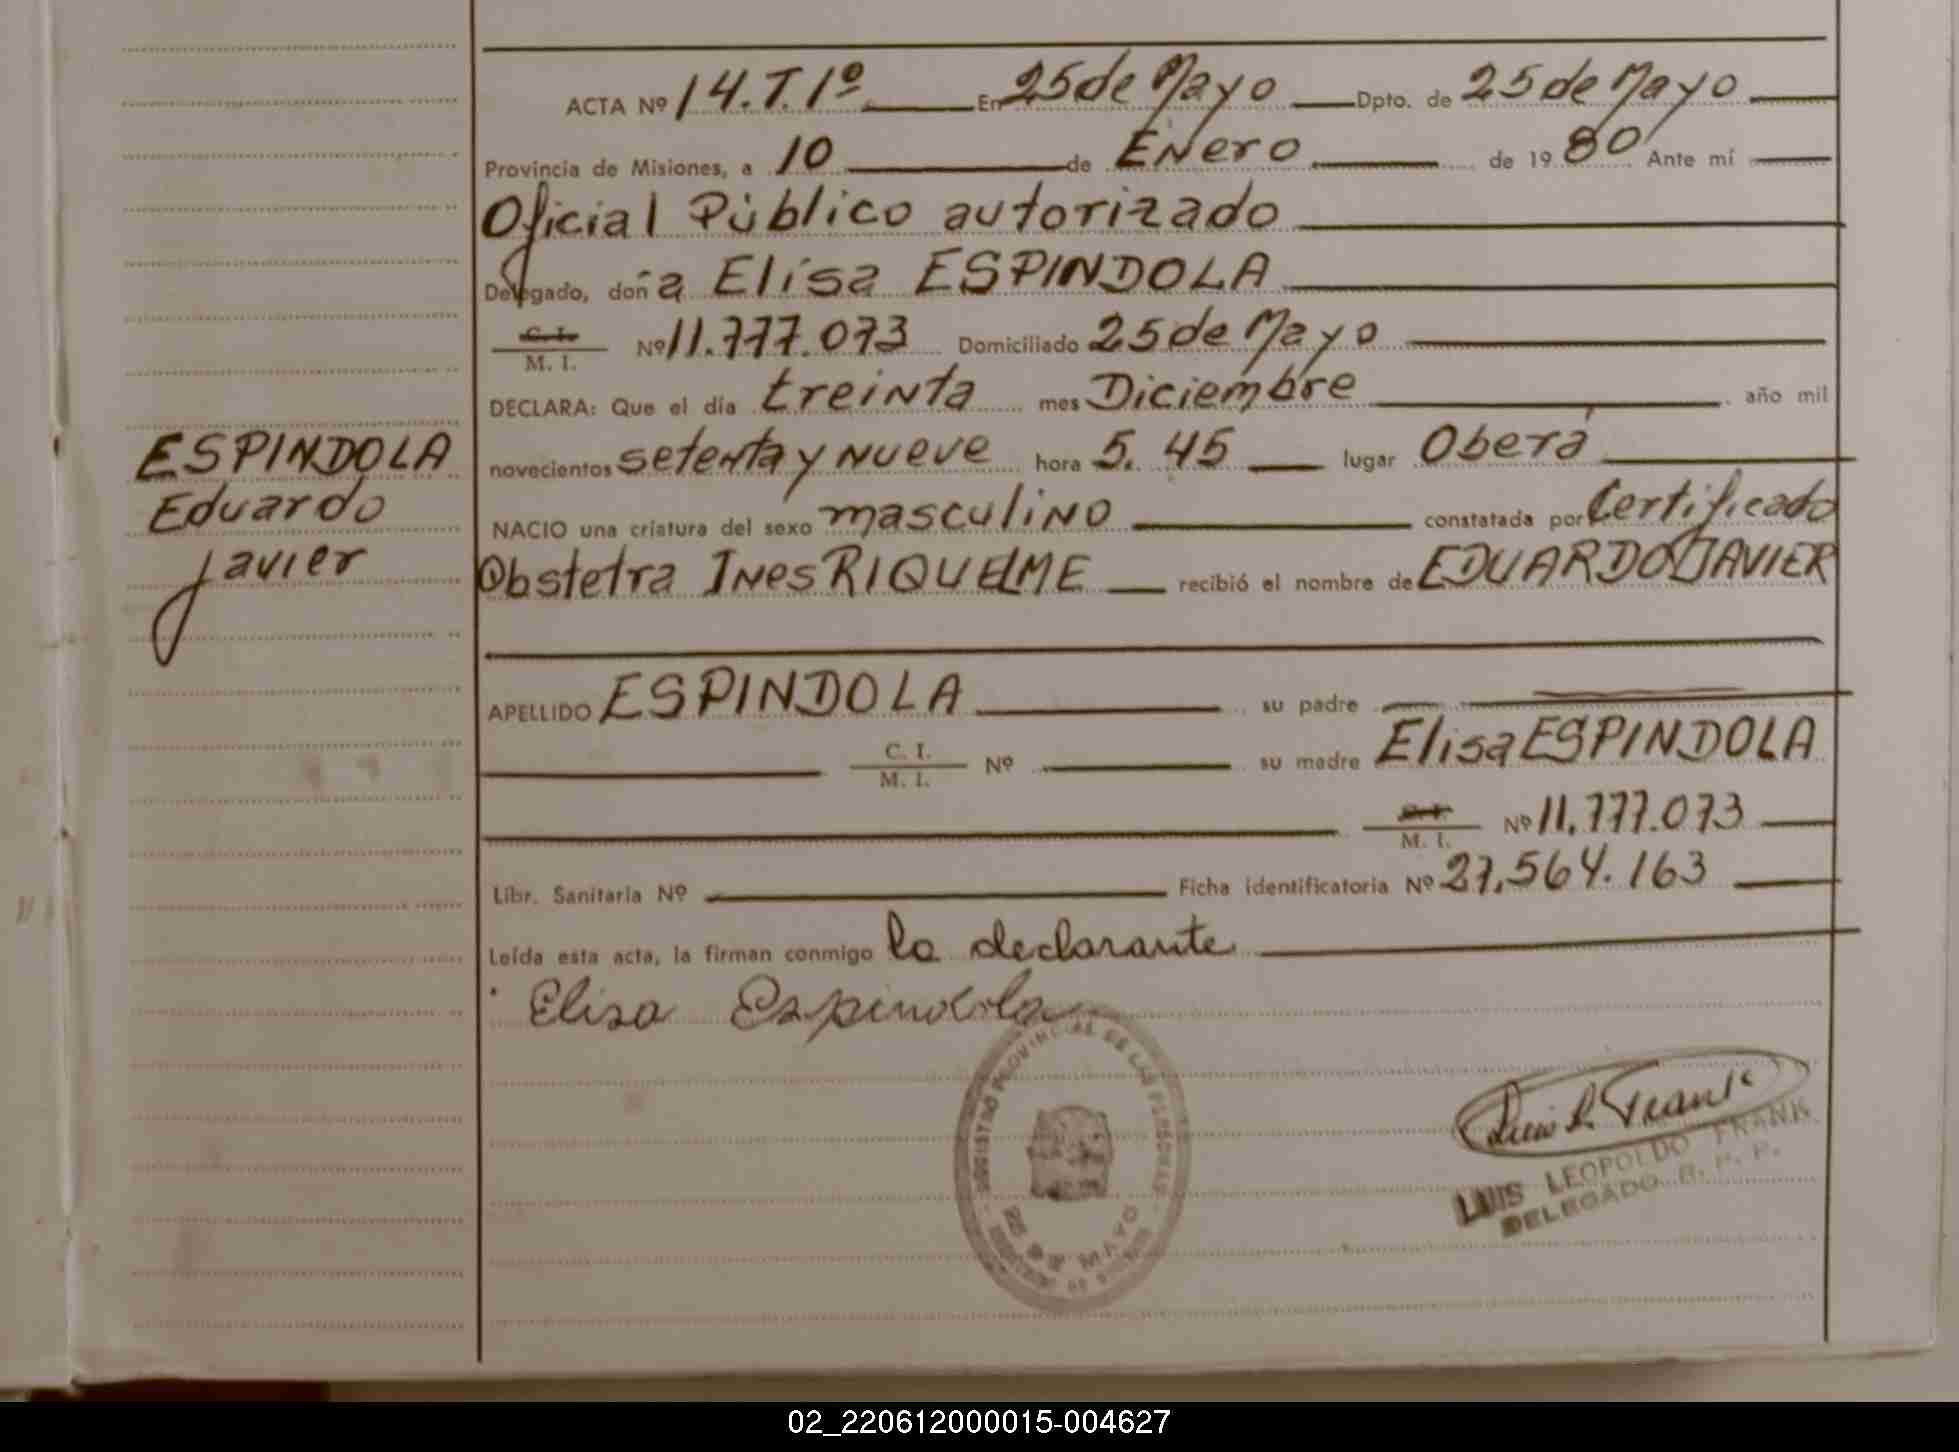 ACTA Nº 14.T.1º En 25 de Mayo Dpto. de 25 de Mayo
Provincia de Misiones, a 10 de Enero de 1980 Ante mí
Oficial Público autorizado
Delegado, doña Elisa ESPINDOLA
C. I.
M. I. Nº 11.777.073 Domiciliado 25 de Mayo
DECLARA: Que el día treinta mes Diciembre año mil
novecientos setenta y nueve hora 5.45 lugar Oberá
NACIO una criatura del sexo masculino constatada por Certificado
Obstetra Ines RIQUELME recibió el nombre de EDUARDO JAVIER
ESPINDOLA
Eduardo
Javier
APELLIDO ESPINDOLA su padre
C. I.
M. I. Nº su madre Elisa ESPINDOLA
C. I.
M. I. Nº 11.777.073
Libr. Sanitaria Nº Ficha identificatoria Nº 27.564.163
Leída esta acta, la firman conmigo la declarante
Elisa Espindola
REGISTRO PROVINCIAL DE LAS PERSONAS
25 de MAYO
Luis L. Frank
LUIS LEOPOLDO FRANK
DELEGADO R. P. P.
02_220612000015-004627